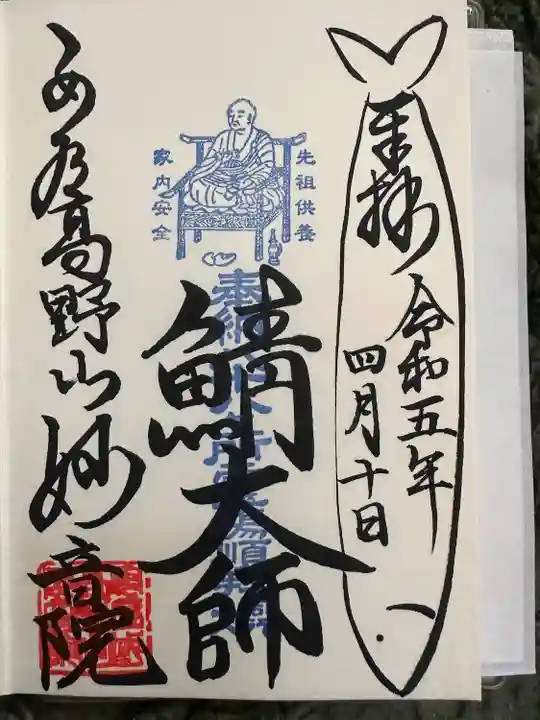 奉拝
令和五年
四月十日
先祖供養
家内安全
鯖大師
女人高野山妙音院